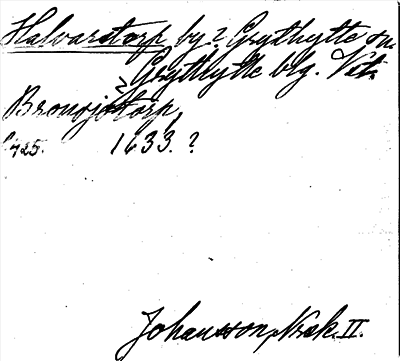 Halvarstorp by? Grythytte sn.
Grythytte blg. Vstm.
Bromsjötorp,
425. 1633.?
Johansson, Norsk. II.